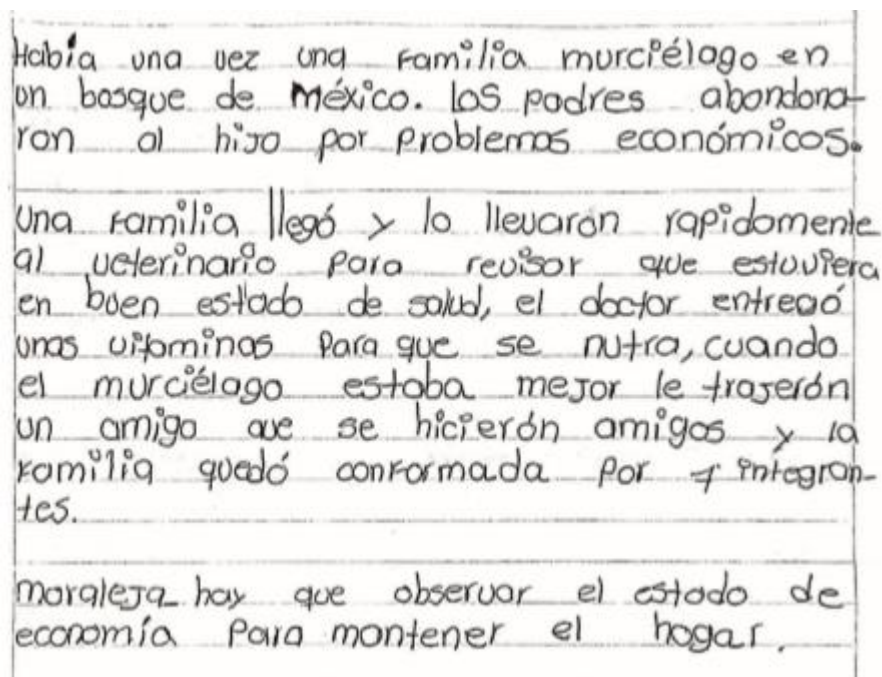 Había una vez una familia murciélago en
un bosque de México. Los padres abandona-
ron al hijo por problemas económicos.
Una familia llegó y lo llevarón rapidamente
al veterinario para revisar que estuviera
en buen estado de salud, el doctor entregó
unas vitaminas para que se nutra, cuando
el murciélago estaba mejor le trajerón
un amigo que se hicierón amigos y la
familia quedó conformada por 4 integran-
tes.
moraleja hay que observar el estado de
economía para mantener el hogar.